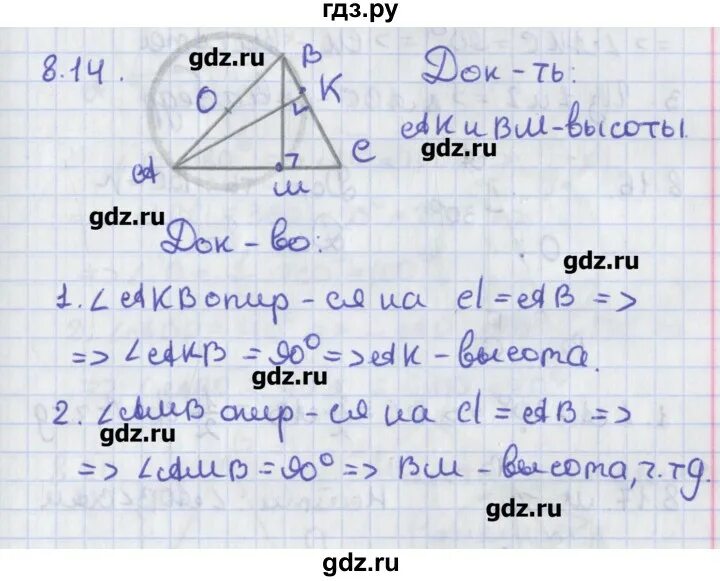 гдз.ру
8.14.
gdz.ru
B
K
O
A
M
C
Док-ть:
AK и BM-высоты.
gdz.ru
gdz.ru
Док-во:
gdz.ru
1. ∠AKB опир-ся на d=AB =>
=> ∠AKB = 90° => AK-высота.
gdz.ru
2. ∠AMB опир-ся на d=AB =>
gdz.ru
=> ∠AMB = 90° => BM-высота, ч.тд.
gdz.ru
gdz.ru